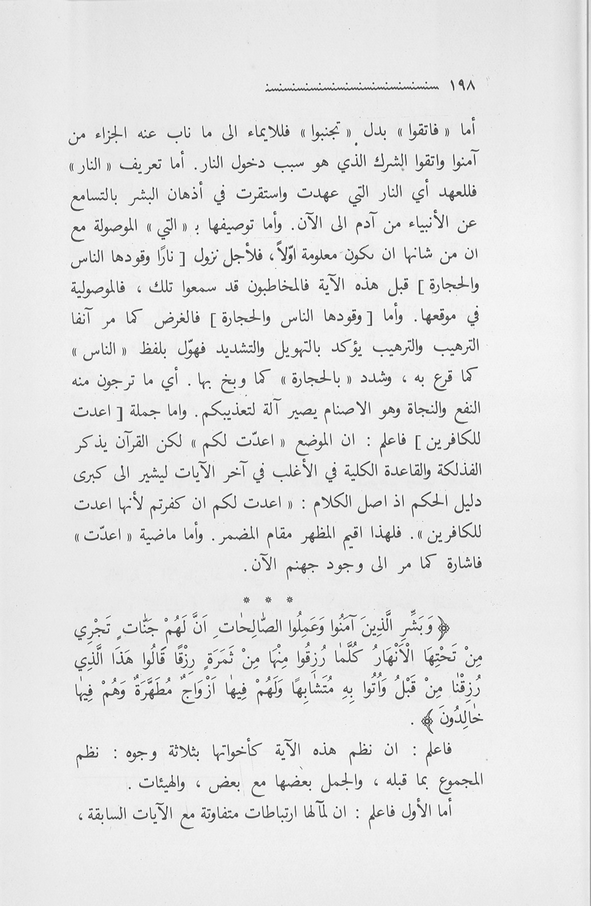 ١٩٨
أما « فاتقوا » بدل « تجنبوا » فللايماء الى ما ناب عنه الجزاء من
آمنوا واتقوا الشرك الذي هو سبب دخول النار. أما تعريف « النار »
فللعهد أي النار التي عهدت واستقرت في أذهان البشر بالتسامع
عن الأنبياء من آدم الى الآن. وأما توصيفها بـ « التي » الموصولة مع
ان من شانها ان يكون معلومة اوّلاً، فلأجل نزول [ نارًا وقودها الناس
والحجارة ] قبل هذه الآية فالمخاطبون قد سمعوا تلك ، فالموصولية
في موقعها. وأما [ وقودها الناس والحجارة ] فالغرض كما مر آنفا
الترهيب والترهيب يؤكد بالتهويل والتشديد فهوّل بلفظ « الناس »
كما قرع به ، وشدد « بالحجارة » كما وبخ بها. أي ما ترجون منه
النفع والنجاة وهو الاصنام يصير آلة لتعذيبكم. واما جملة [ اعدت
للكافرين ] فاعلم : ان الموضع « اعدّت لكم » لكن القرآن يذكر
الفذلكة والقاعدة الكلية في الأغلب في آخر الآيات ليشير الى كبرى
دليل الحكم اذ اصل الكلام : « اعدت لكم ان كفرتم لأنها اعدت
للكافرين ». فلهذا اقيم المظهر مقام المضمر. وأما ماضية « اعدّت »
فاشارة كما مر الى وجود جهنم الآن.
* * *
﴿ وَبَشِّرِ الَّذِينَ آمَنُوا وَعَمِلُوا الصَّالِحَاتِ اَنَّ لَهُمْ جَنَّاتٍ تَجْرِي
مِنْ تَحْتِهَا الْأَنْهَارُ كُلَّمَا رُزِقُوا مِنْهَا مِنْ ثَمَرَةٍ رِزْقًا قَالُوا هَذَا الَّذِي
رُزِقْنَا مِنْ قَبْلُ وَأُتُوا بِهِ مُتَشَابِهًا وَلَهُمْ فِيهَا اَزْوَاجٌ مُطَهَّرَةٌ وَهُمْ فِيهَا
خَالِدُونَ ﴾ .
فاعلم : ان نظم هذه الآية كأخواتها بثلاثة وجوه : نظم
المجموع بما قبله ، والجمل بعضها مع بعض ، والهيئات .
أما الأول فاعلم : ان لمآلها ارتباطات متفاوتة مع الآيات السابقة ،